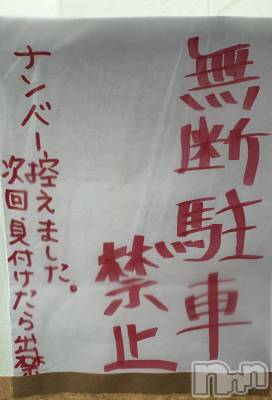 無断駐車
禁止
ナンバー控えました。
次回、見付けたら出禁